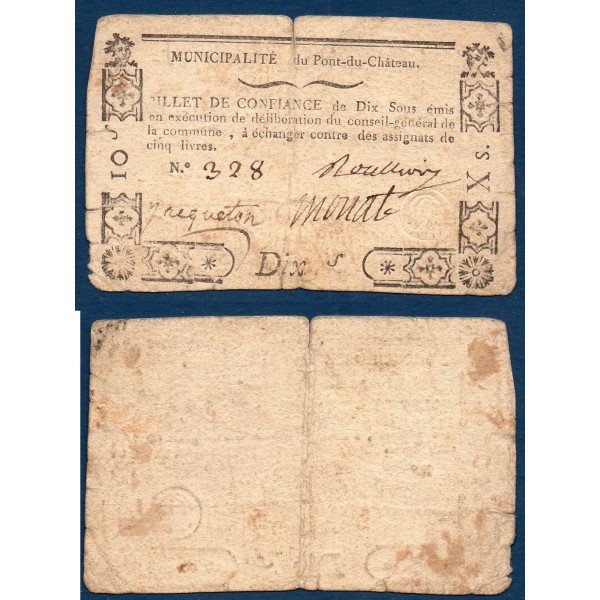 MUNICIPALITÉ du Pont-du-Château.
BILLET DE CONFIANCE de Dix Sous émis
en exécution de délibération du conseil-général de
la commune, à échanger contre des assignats de
cinq livres.
N.° 328
Jacqueton Monat
10 s
X s.
Dix s